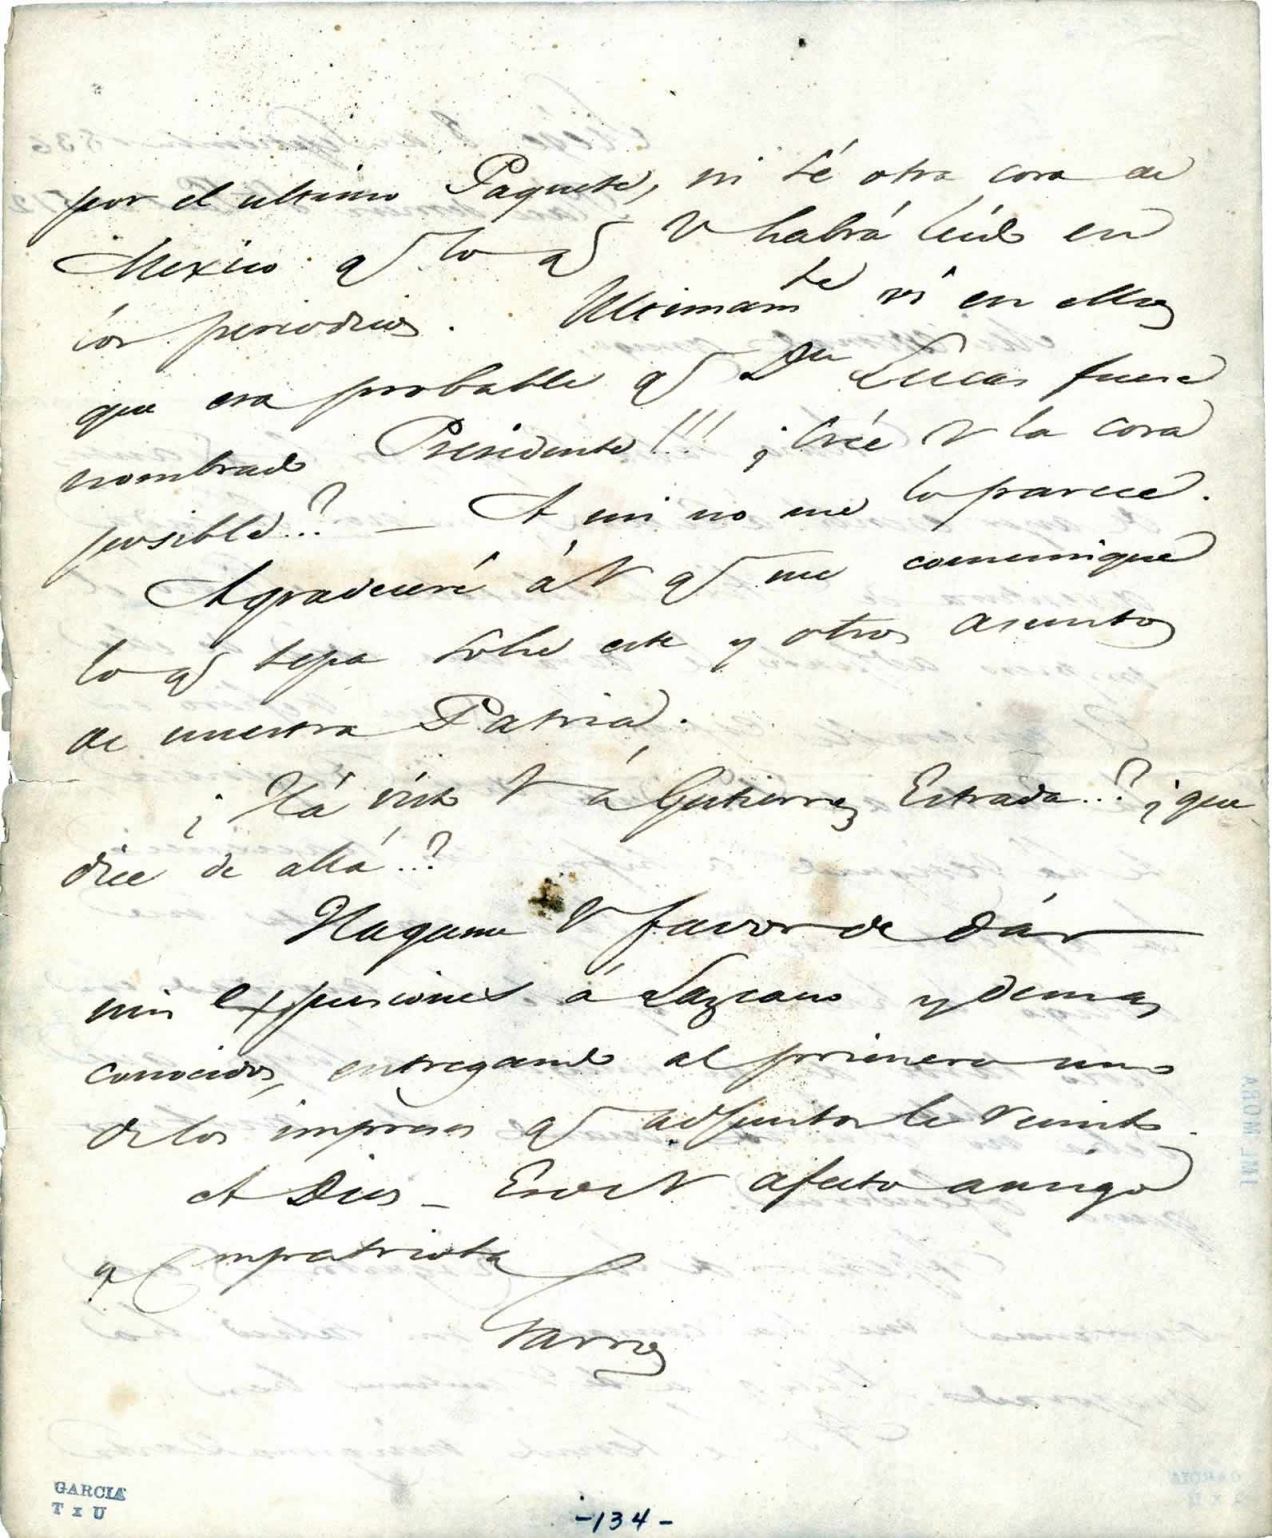 por el ultimo Paquete, ni sé otra cosa de
Mexico q̃ lo q̃ V habrá leido en
los periodicos. Ultimamte vi en ellos
que era probable q̃ Dn Lucas fuese
nombrado Presidente!!! ¿Crée V la cosa
posible..? — A mi no me lo parece.
Agradeceré á V q̃ me comunique
lo q̃ sepa sobre este y otros asuntos
de nuestra Patria.
¿Há visto V á Gutierrez Estrada..? ¿que
dice de allá..?
Hagame V favor de dár
mis expresiones á Lazcano y demas
conocidos, entregando al primero uno
de los impresos q̃ adjuntos le remito.
A Dios — Es de V afecto amigo
y Compatriota
GARCIA
T x U
-134-
JML MORA